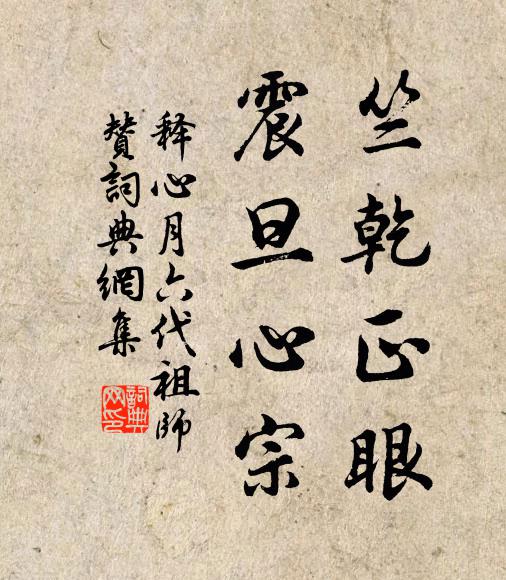 竺乾正眼
震旦心宗
释心月六代祖師
賛詞典網集
詞典网印